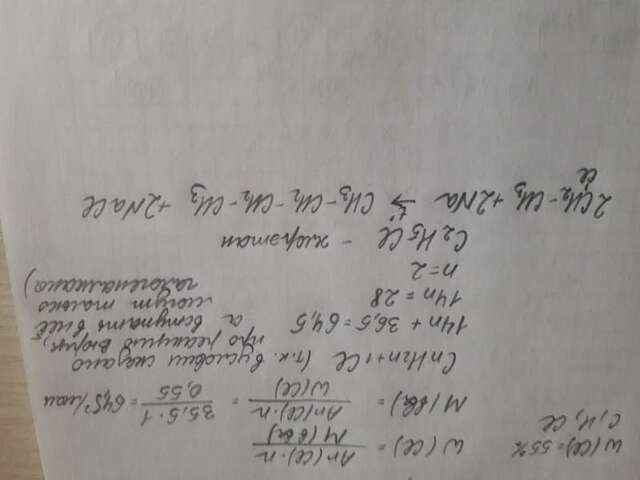 W(Cl)=55%
C, H, Cl
W(Cl) = Ar(Cl)·n / M(вва)
M(вва) = Ar(Cl)·n / W(Cl) = 35,5·1 / 0,55 = 64,5 г/моль
CnH2n+1Cl (т.к. в условии сказано
про реакцию Вюрца,
а вступать в неё
могут только
галогеналканы)
14n + 36,5 = 64,5
14n = 28
n = 2
C2H5Cl - хлорэтан
2CH2-CH3 + 2Na t° → CH3-CH2-CH2-CH3 + 2NaCl
Cl